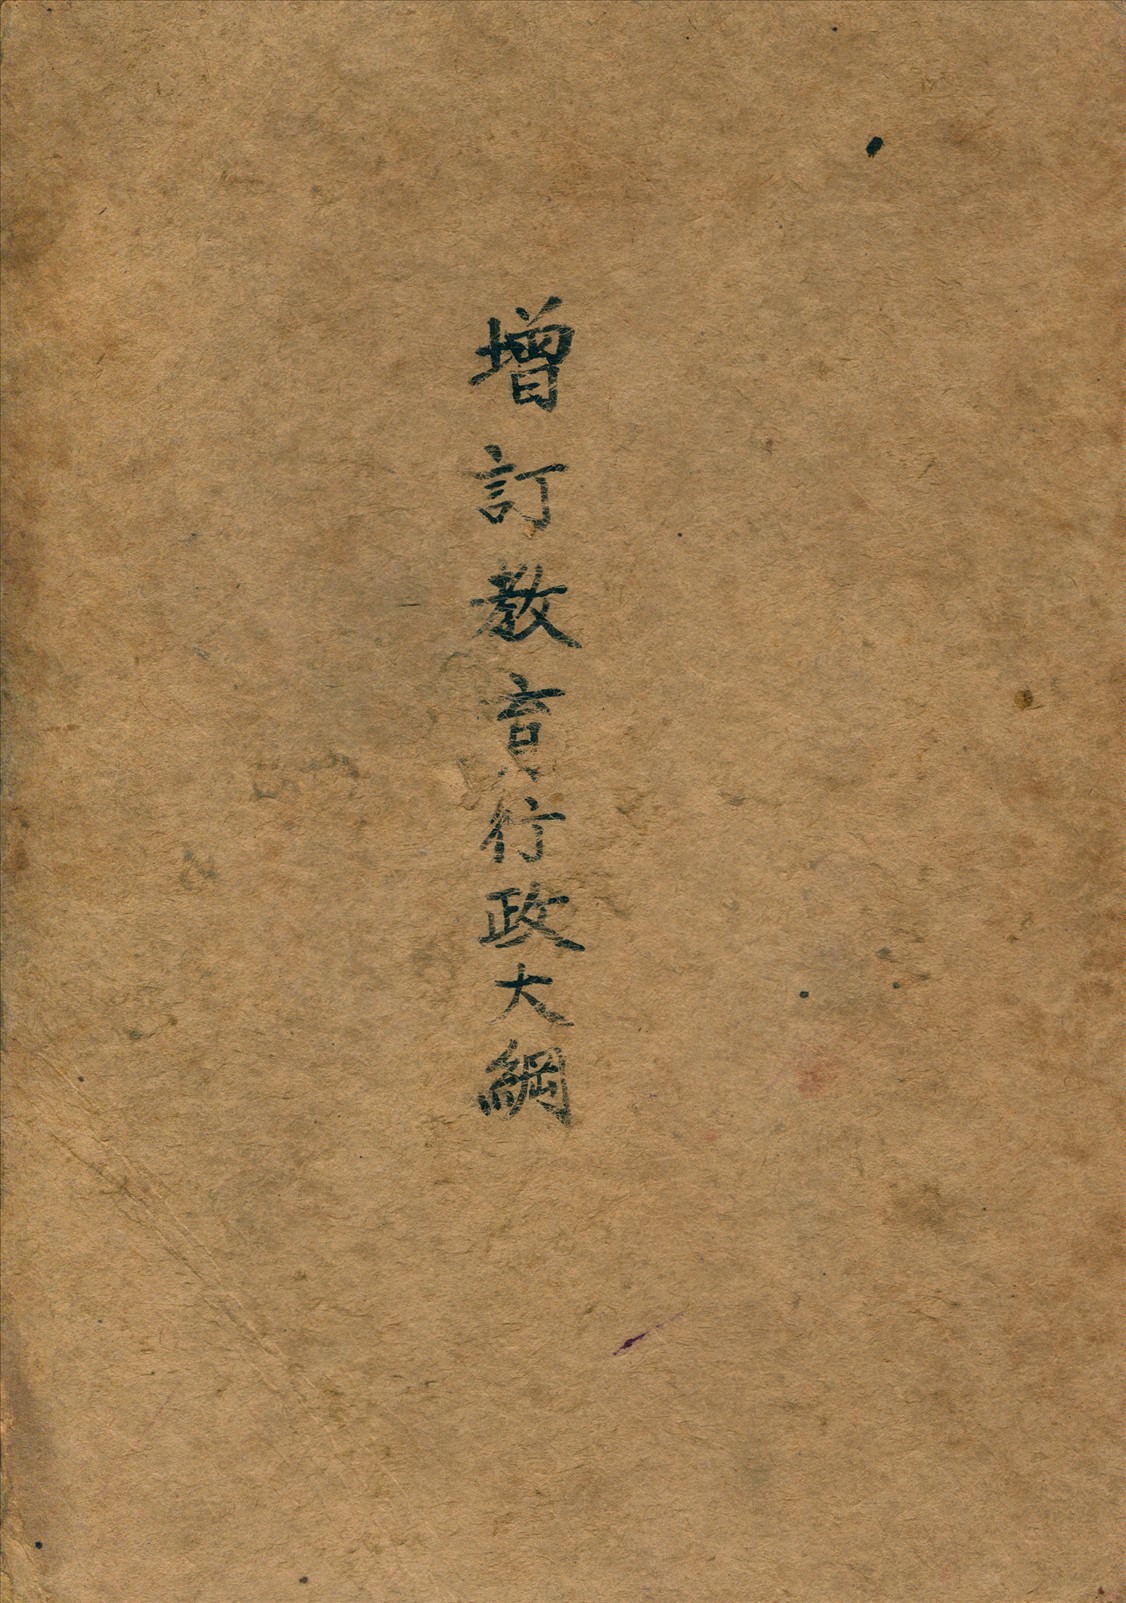 增訂教育行政大綱